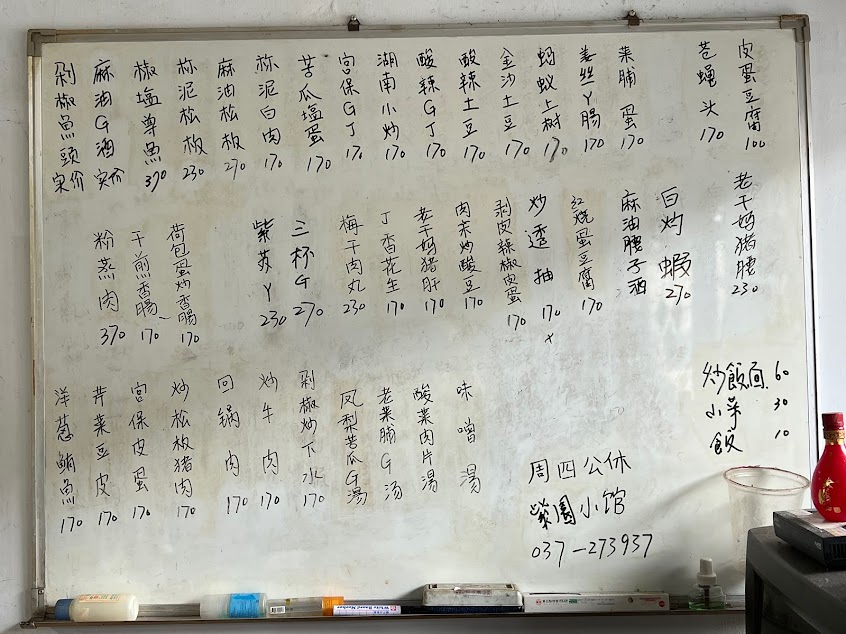 皮蛋豆腐 100
苍蝇头 170
菜脯蛋 170
姜丝丫腸 170
蚂蚁上树 170
金沙土豆 170
酸辣土豆 170
酸辣G丁 170
湖南小炒 170
宮保G丁 170
苦瓜塩蛋 170
蒜泥白肉 170
麻油松板 270
蒜泥松板 230
椒塩尊魚 370
麻油G酒 实价
剁椒魚頭 实价
老干妈猪腰 230
白灼蝦 270
麻油腰子酒
红烧蛋豆腐 170
炒透抽 170 x
剥皮辣椒皮蛋 170
肉末炒酸豆 170
老干妈猪肝 170
丁香花生 170
梅干肉丸 230
三杯G 270
紫苏丫 230
荷包蛋炒香腸 170
干煎香腸 170
粉蒸肉 370
炒飯面 60
小菜 30
飯 10
味噌湯
酸菜肉片湯
老菜脯G汤
凤梨苦瓜G湯
剁椒炒下水 170
炒牛肉 170
回锅肉 170
炒松板猪肉 170
宮保皮蛋 170
芹菜豆皮 170
洋蔥鮪魚 170
周四公休
菜園小馆
037-273937